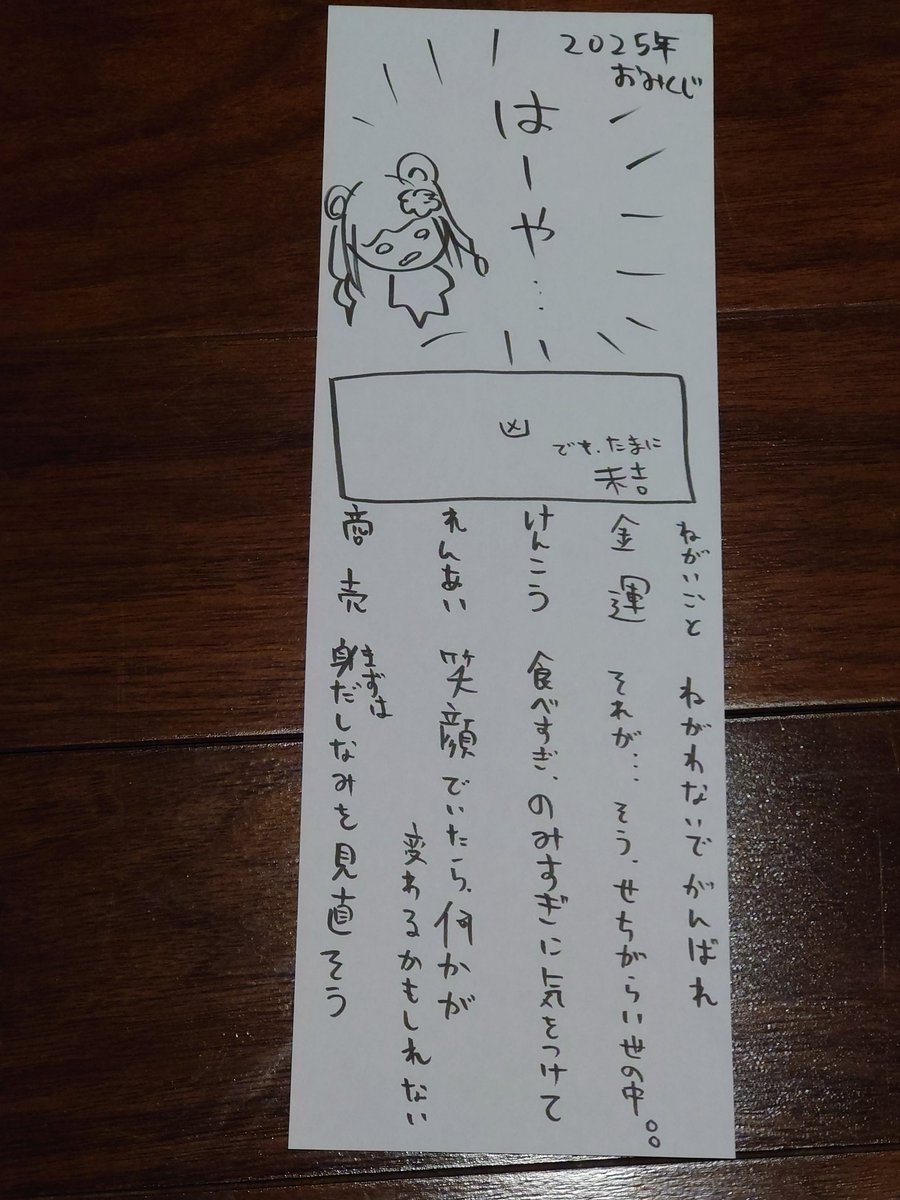 2025年
おみくじ
はーや…
凶
でも、たまに
末吉
ねがいごと ねがわないでがんばれ
金運 それが… そう、せちがらい世の中。。
けんこう 食べすぎ、のみすぎに気をつけて
れんあい 笑顔でいたら、何かが
変わるかもしれない
商売 まずは
身だしなみを見直そう